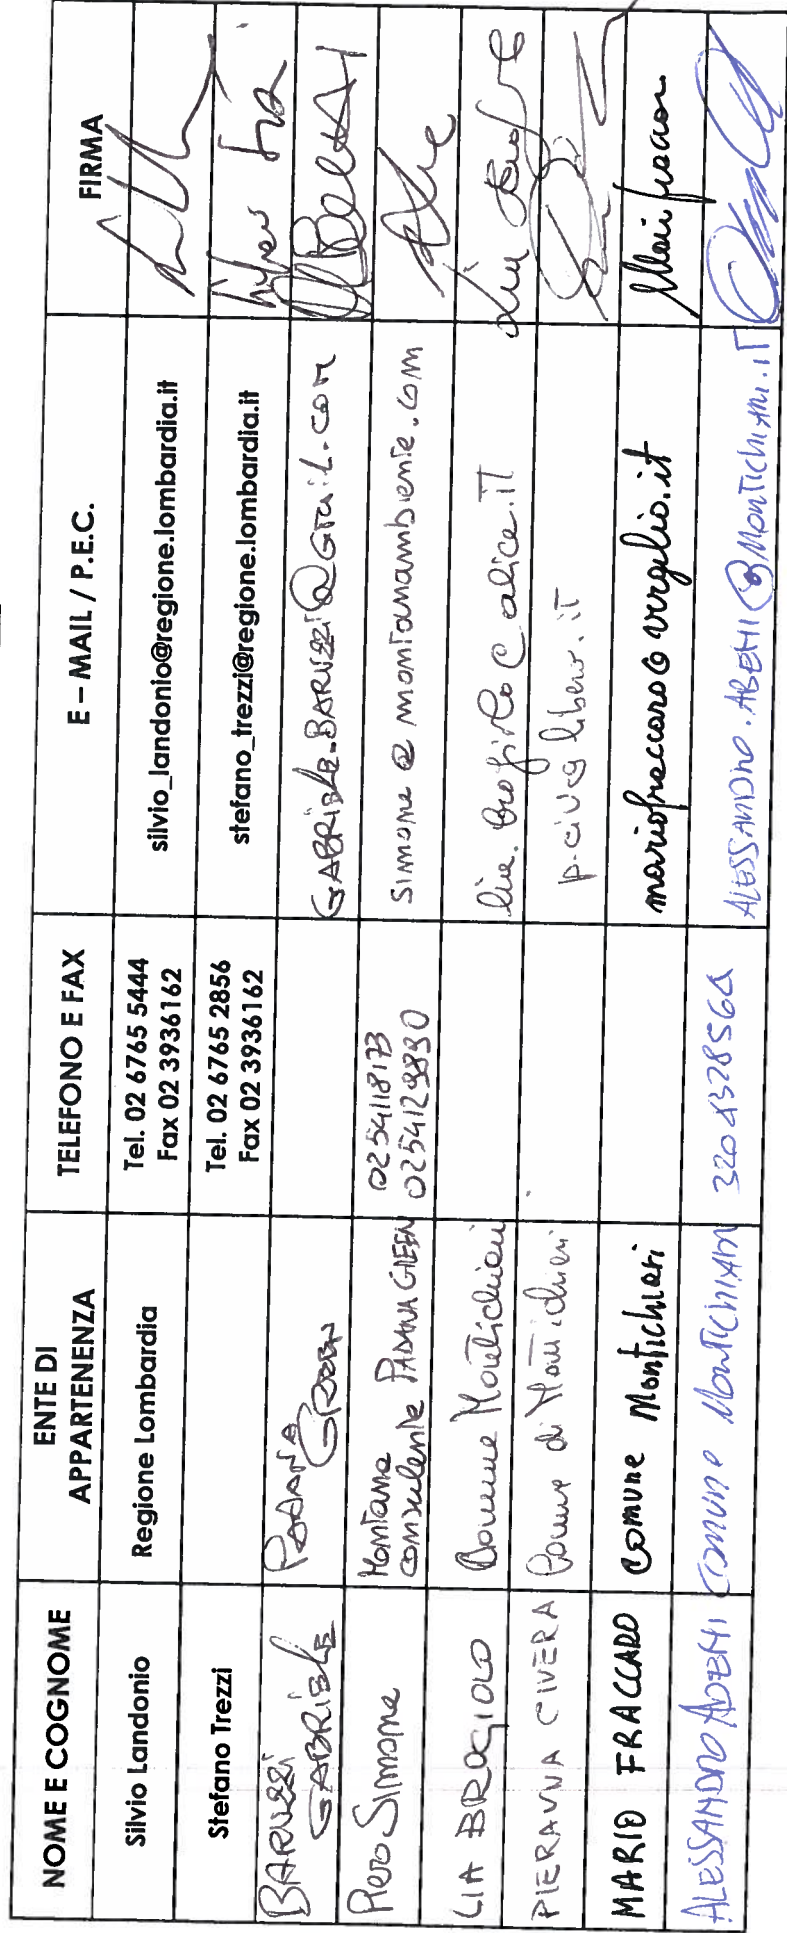 NOME E COGNOME
ENTE DI
APPARTENENZA
TELEFONO E FAX
E – MAIL / P.E.C.
FIRMA
Silvio Landonio
Regione Lombardia
Tel. 02 6765 5444
Fax 02 3936162
silvio_landonio@regione.lombardia.it
Stefano Trezzi
Tel. 02 6765 2856
Fax 02 3936162
stefano_trezzi@regione.lombardia.it
BARUZZI
GABRIELE
PADANA
GREEN
GABRIELE.BARUZZI@GMAIL.COM
Piero Simone
Montana
consulente PADANA GREEN
0254118173
0254129890
simone@montanambiente.com
LIA BROGIOLO
Comune Montichiari
@alice.it
PIERANNA CIVERA
Comune di Montichiari
libero.it
MARIO FRACCARO
comune Montichiari
mariofraccaro@virgilio.it
ALESSANDRO
COMUNE MONTICHIARI
@MONTICHIARI.IT